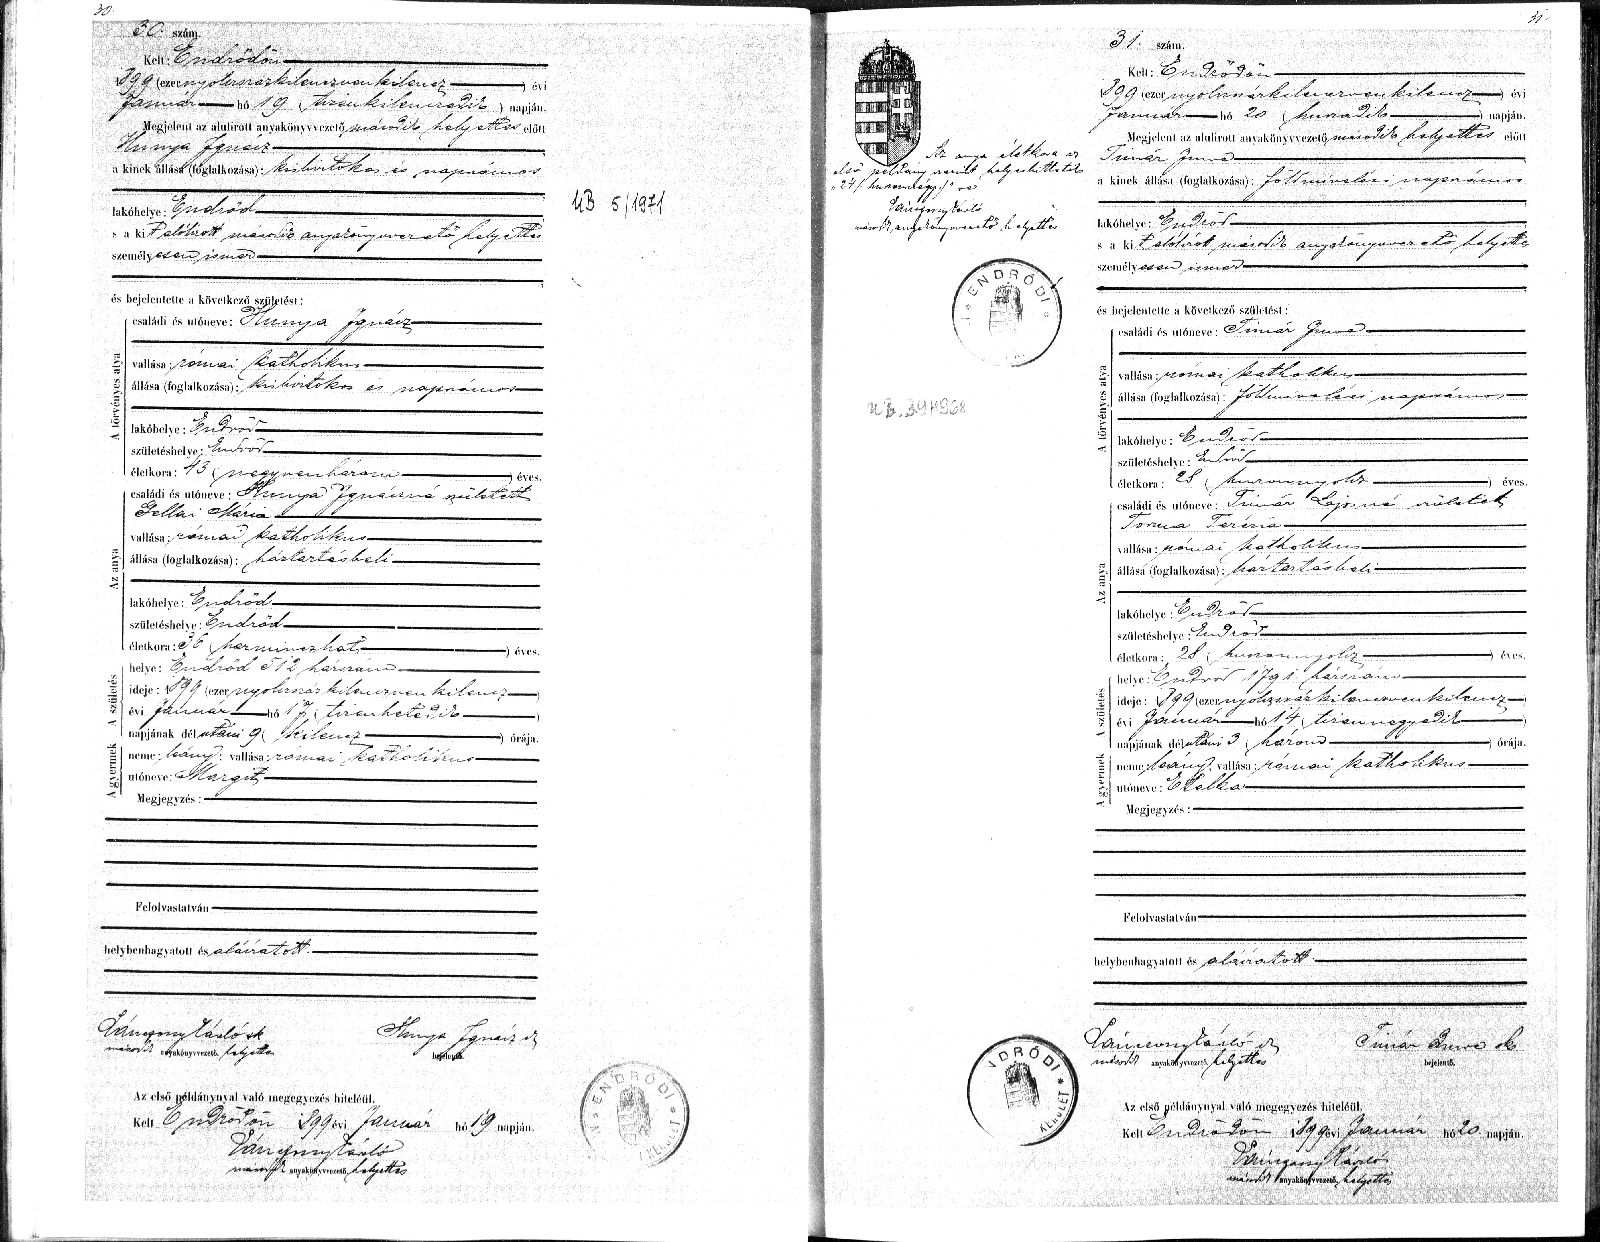 30.
30. szám.
Kelt: Endrődön
1899 (ezer nyolczszázkilenczvenkilencz) évi
Január hó 19 (tizenkilenczedik) napján.
Megjelent az alulirott anyakönyvvezető, második helyettes előtt
Hunya Ignácz
a kinek állása (foglalkozása): kisbirtokos és napszámos
lakóhelye: Endrőd
s a kit alólírott második anyakönyvvezető helyettes
személyesen ismer
és bejelentette a következő születést:
A törvényes atya
családi és utóneve: Hunya Ignácz
vallása: római katholikus
állása (foglalkozása): kisbirtokos és napszámos
lakóhelye: Endrőd
születéshelye: Endrőd
életkora: 43 (negyvenhárom) éves.
Az anya
családi és utóneve: Hunya Ignáczné született
Gellai Mária
vallása: római katholikus
állása (foglalkozása): háztartásbeli
lakóhelye: Endrőd
születéshelye: Endrőd
életkora: 36 (harminczhat) éves.
A születés
helye: Endrőd 512 házszám
ideje: 1899 (ezer nyolczszázkilenczvenkilencz)
évi Január hó 17 (tizenhetedik)
napjának délutáni 9 (kilencz) órája.
A gyermek
neme: leány; vallása: római katholikus
utóneve: Margit
Megjegyzés:
Felolvastatván
helybenhagyatott és aláiratott.
másodk anyakönyvvezető, helyettes
Hunya Ignácz sk
bejelentő.
Az első példánynyal való megegyezés hiteléül.
Kelt Endrődön 1899 évi Január hó 19 napján.
másodk anyakönyvvezető, helyettes
ENDRŐDI
UB 5/1971
31.
31. szám.
Kelt: Endrődön
1899 (ezer nyolczszázkilenczvenkilencz) évi
Január hó 20 (huszadik) napján.
Megjelent az alulirott anyakönyvvezető, második helyettes előtt
Timár Imre
a kinek állása (foglalkozása): földmivelési napszámos
lakóhelye: Endrőd
s a kit alólírott második anyakönyvvezető helyettes
személyesen ismer
és bejelentette a következő születést:
A törvényes atya
családi és utóneve: Timár Imre
vallása: római katholikus
állása (foglalkozása): földmivelési napszámos
lakóhelye: Endrőd
születéshelye: Endrőd
életkora: 28 (huszonnyolcz) éves.
Az anya
családi és utóneve: Timár Lajosné született
Terézia
vallása: római katholikus
állása (foglalkozása): háztartásbeli
lakóhelye: Endrőd
születéshelye: Endrőd
életkora: 28 (huszonnyolcz) éves.
A születés
helye: Endrőd 1791 házszám
ideje: 1899 (ezer nyolczszázkilenczvenkilencz)
évi Január hó 14 (tizennegyedik)
napjának délutáni 3 (három) órája.
A gyermek
neme: leány; vallása: római katholikus
utóneve: Etelka
Megjegyzés:
Felolvastatván
helybenhagyatott és aláiratott
másodk anyakönyvvezető, helyettes
Timár Imre sk
bejelentő.
Az első példánynyal való megegyezés hiteléül.
Kelt Endrődön 1899 évi Január hó 20 napján.
másodk anyakönyvvezető, helyettes
Az anya életkora az
első példány szerint helyesbittetik
"24 (huszonnégy)" re
másodk anyakönyvvezető helyettes
ENDRŐDI